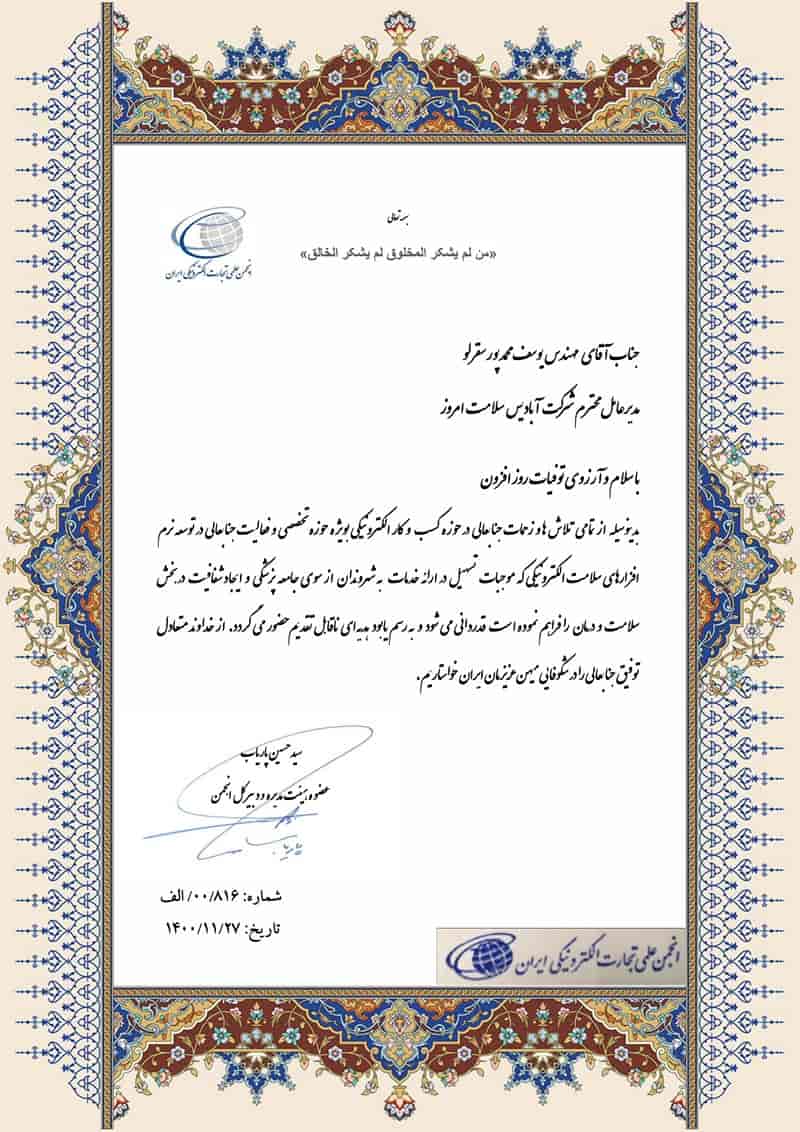 بسمه تعالی
«من لم یشکر المخلوق لم یشکر الخالق»
انجمن علمی تجارت الکترونیکی ایران
جناب آقای مهندس یوسف محمدپور سقرلو
مدیرعامل محترم شرکت آبادیس سلامت امروز
با سلام و آرزوی توفیقات روز افزون
بدینوسیله از تمامی تلاش ها و زحمات جنابعالی در حوزه کسب و کار الکترونیکی بویژه حوزه تخصصی و فعالیت جنابعالی در توسعه نرم
افزارهای سلامت الکترونیکی که موجبات تسهیل در ارائه خدمات به شهروندان از سوی جامعه پزشکی و ایجاد شفافیت در بخش
سلامت و درمان را فراهم نموده است قدردانی می شود و به رسم یابود هدیه ای ناقابل تقدیم حضور می گردد. از خداوند متعادل
توفیق جنابعالی را در شکوفایی میهن عزیزمان ایران خواستاریم.
سید حسین پاریاب
عضو هیئت مدیره و دبیر کل انجمن
شماره: ۰۰/۸۱۶/ الف
تاریخ: ۱۴۰۰/۱۱/۲۷
انجمن علمی تجارت الکترونیکی ایران